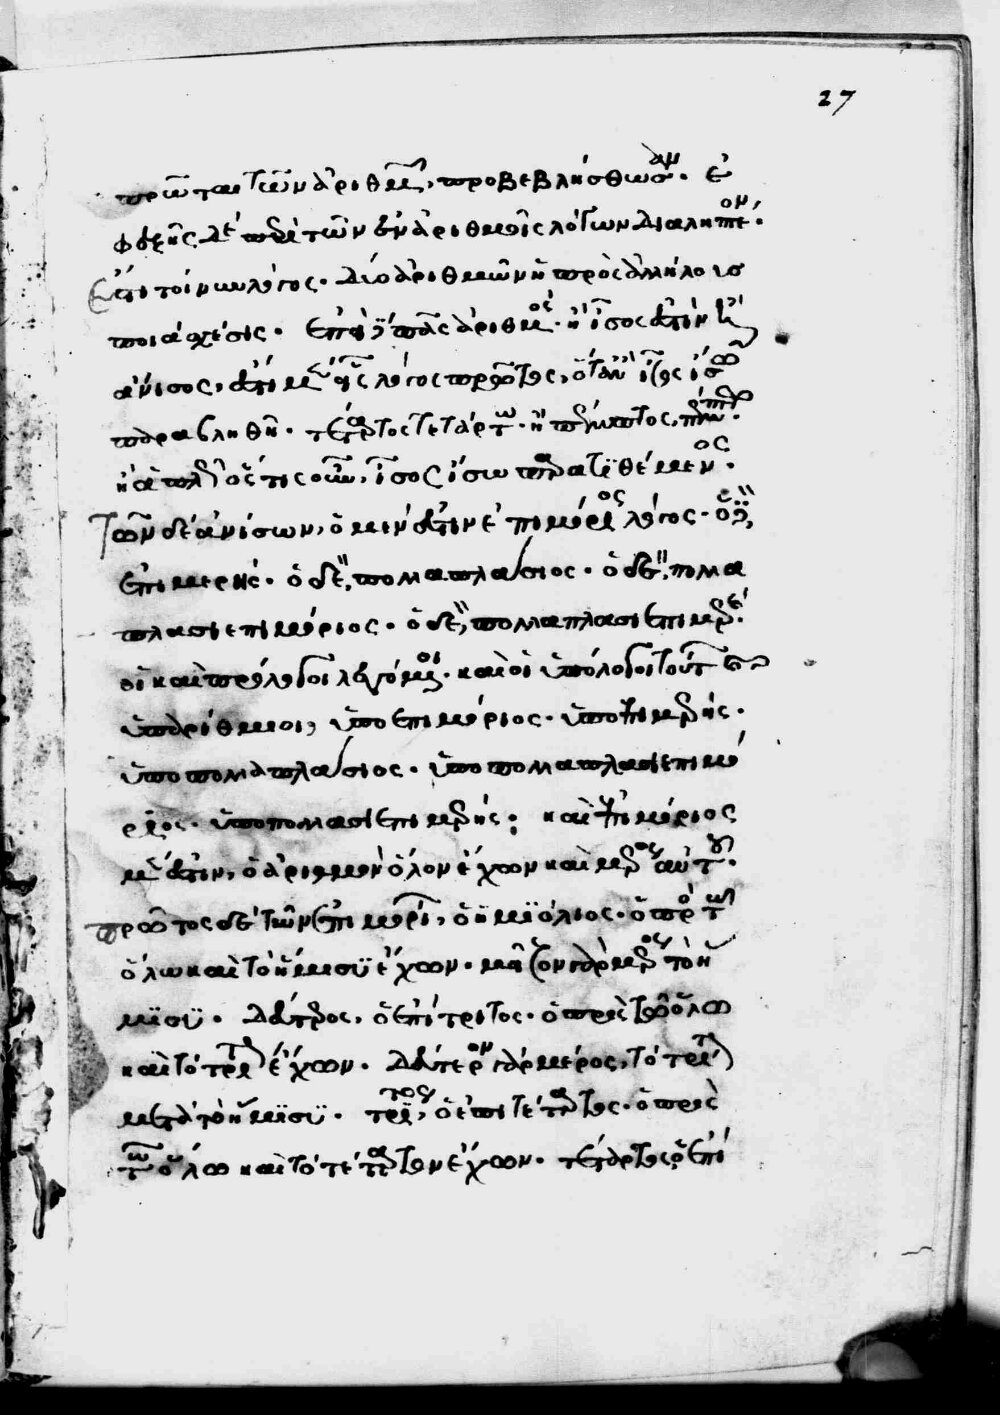 27
πρῶται τῶν ἀριθμῶν, προβεβλήσθωσαν. ἐ
φεξῆς δὲ περὶ τῶν ἐν ἀριθμοῖς λόγων διαληπτέον.
ἔστι τοίνυν λόγος. δύο ἀριθμῶν ἡ πρὸς ἀλλήλους
ποιὰ σχέσις. ἐπεὶ πᾶς ἀριθμὸς. ἢ ἴσος ἐστὶν ἢ
ἄνισος, ἔστι μὲν εἷς λόγος πρῶτος, ὅταν ἴσος ἴσω
παραβληθῆ. τέταρτος τετάρτω. ἢ πέμπτος, πέμπτω.
ἢ ἁπλῶς ὅστις οὖν, ἴσος ἴσω παρατιθέμενος.
τῶν δὲ ἀνίσων, ὁ μέν ἐστιν ἐπιμόριος λόγος. ὁ δὲ,
ἐπιμερής. ὁ δὲ, πολλαπλάσιος. ὁ δὲ, πολλα
πλασιεπιμόριος. ὁ δὲ, πολλαπλασιεπιμερὴς.
οἳ καὶ πρόλογοι λεγόμενοι. καὶ οἱ ὑπόλογοι τούτων
ὑπάριθμοι, ὑποεπιμόριος. ὑποεπιμερής.
ὑποπολλαπλάσιος. ὑποπολλαπλασιεπιμό
ριος. ὑποπολλασιεπιμερής. καὶ ἐπιμόριος
μέν ἐστιν, ὁ ἀριθμὸν ὅλον ἔχων καὶ μέρος αὐτοῦ.
πρῶτος δὲ τῶν ἐπιμορίων, ὁ ἡμιόλιος. ὁ πρὸς τῶ
ὅλω καὶ τὸ ἥμισυ ἔχων. μεῖζον γὰρ μέρος τὸ ἥ
μισυ. δεύτερος, ὁ ἐπίτριτος. ὁ πρὸς τῶ ὅλω
καὶ τὸ τρίτον ἔχων. δεύτερον γὰρ μέρος, τὸ τρίτον
μετὰ τὸ ἥμισυ. τρίτος, ὁ ἐπιτέταρτος. ὁ πρὸς
τῶ ὅλω καὶ τὸ τέταρτον ἔχων. τέταρτος ὁ ἐπί